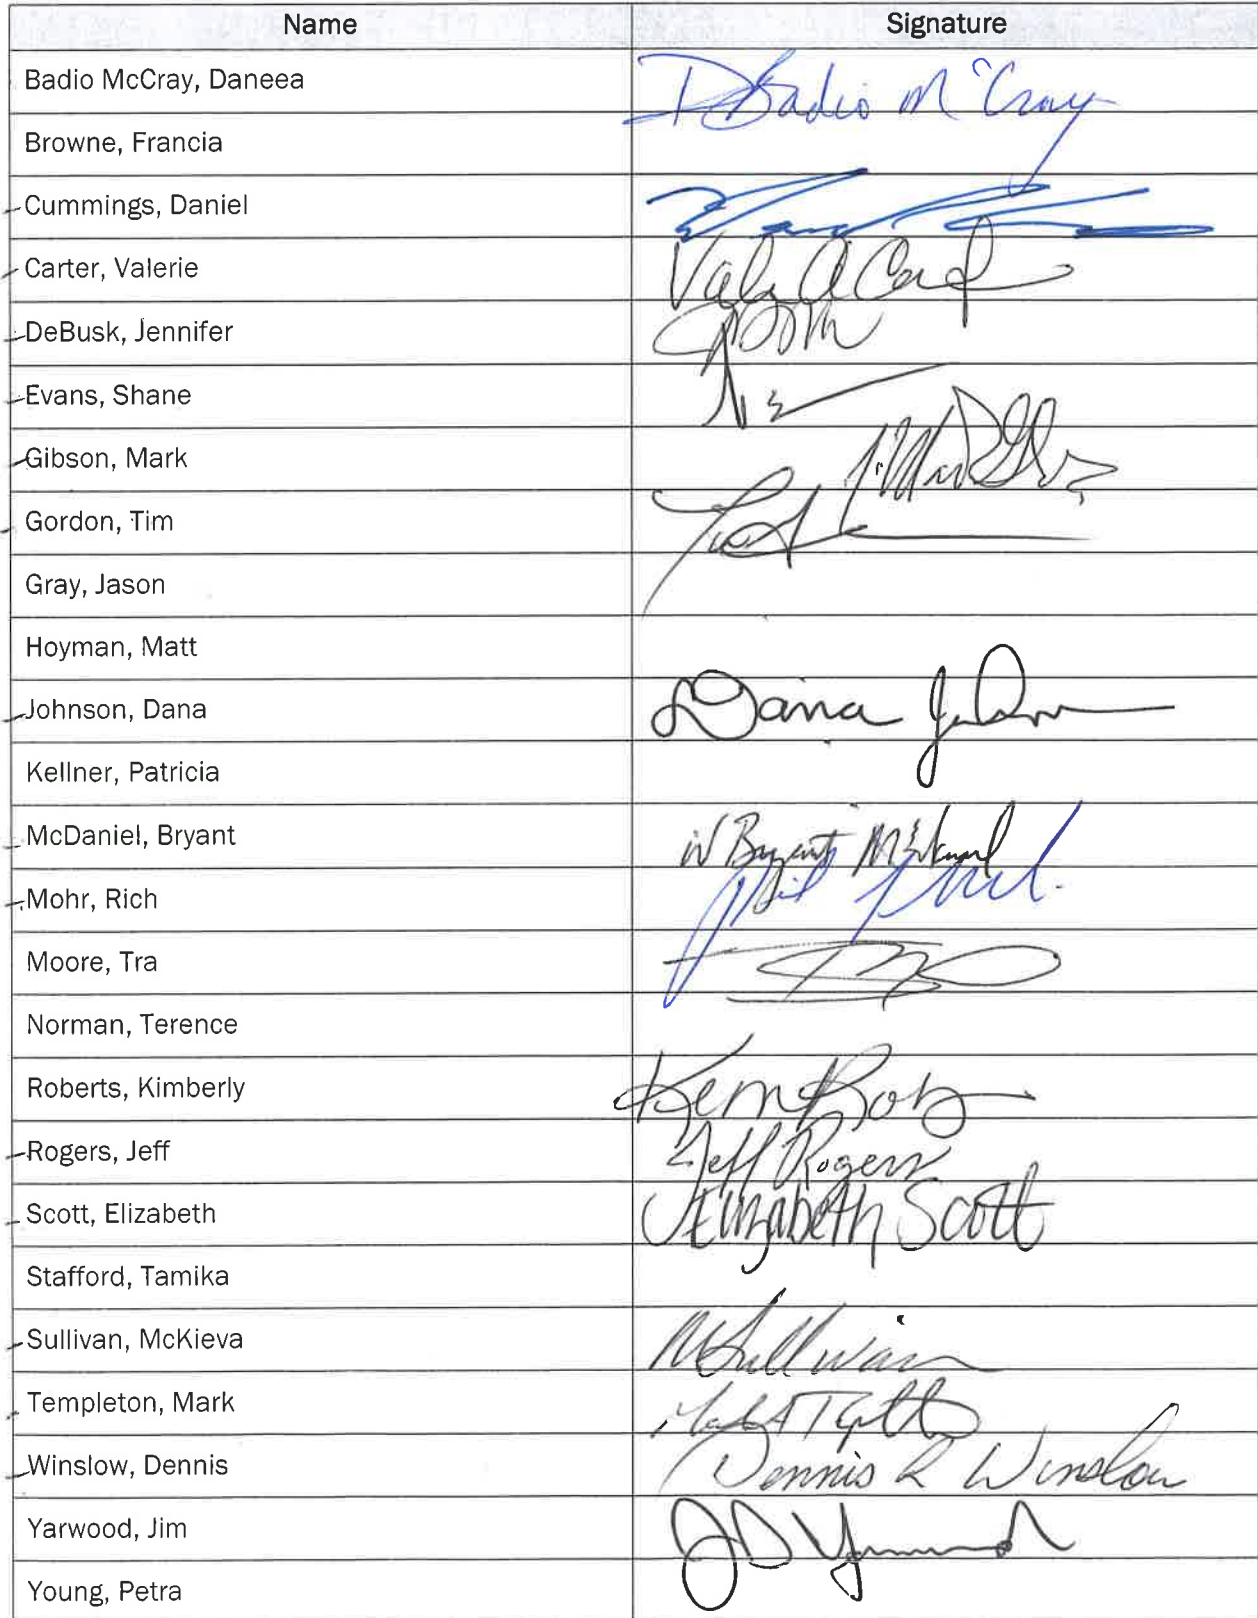 Name Signature
Badio McCray, Daneea DBadio McCray
Browne, Francia
Cummings, Daniel
Carter, Valerie
DeBusk, Jennifer
Evans, Shane
Gibson, Mark
Gordon, Tim
Gray, Jason
Hoyman, Matt
Johnson, Dana Dana
Kellner, Patricia
McDaniel, Bryant W Bryant
Mohr, Rich
Moore, Tra
Norman, Terence
Roberts, Kimberly
Rogers, Jeff Jeff Rogers
Scott, Elizabeth Elizabeth Scott
Stafford, Tamika
Sullivan, McKieva MSullivan
Templeton, Mark
Winslow, Dennis Dennis R Winslow
Yarwood, Jim
Young, Petra